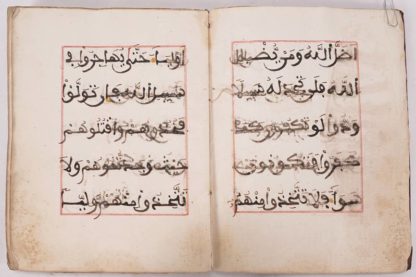 اضل الله ومن يضلل
الله فلن تجد له سبيلا
ودوا لو تكفرون كما
كفروا فتكونون
سوا فلا تتخذوا منهم
اوليا حتى يهاجروا في
سبيل الله فان تولوا
فخذوهم واقتلوهم
حيث وجدتموهم ولا
تتخذوا منهم وليا